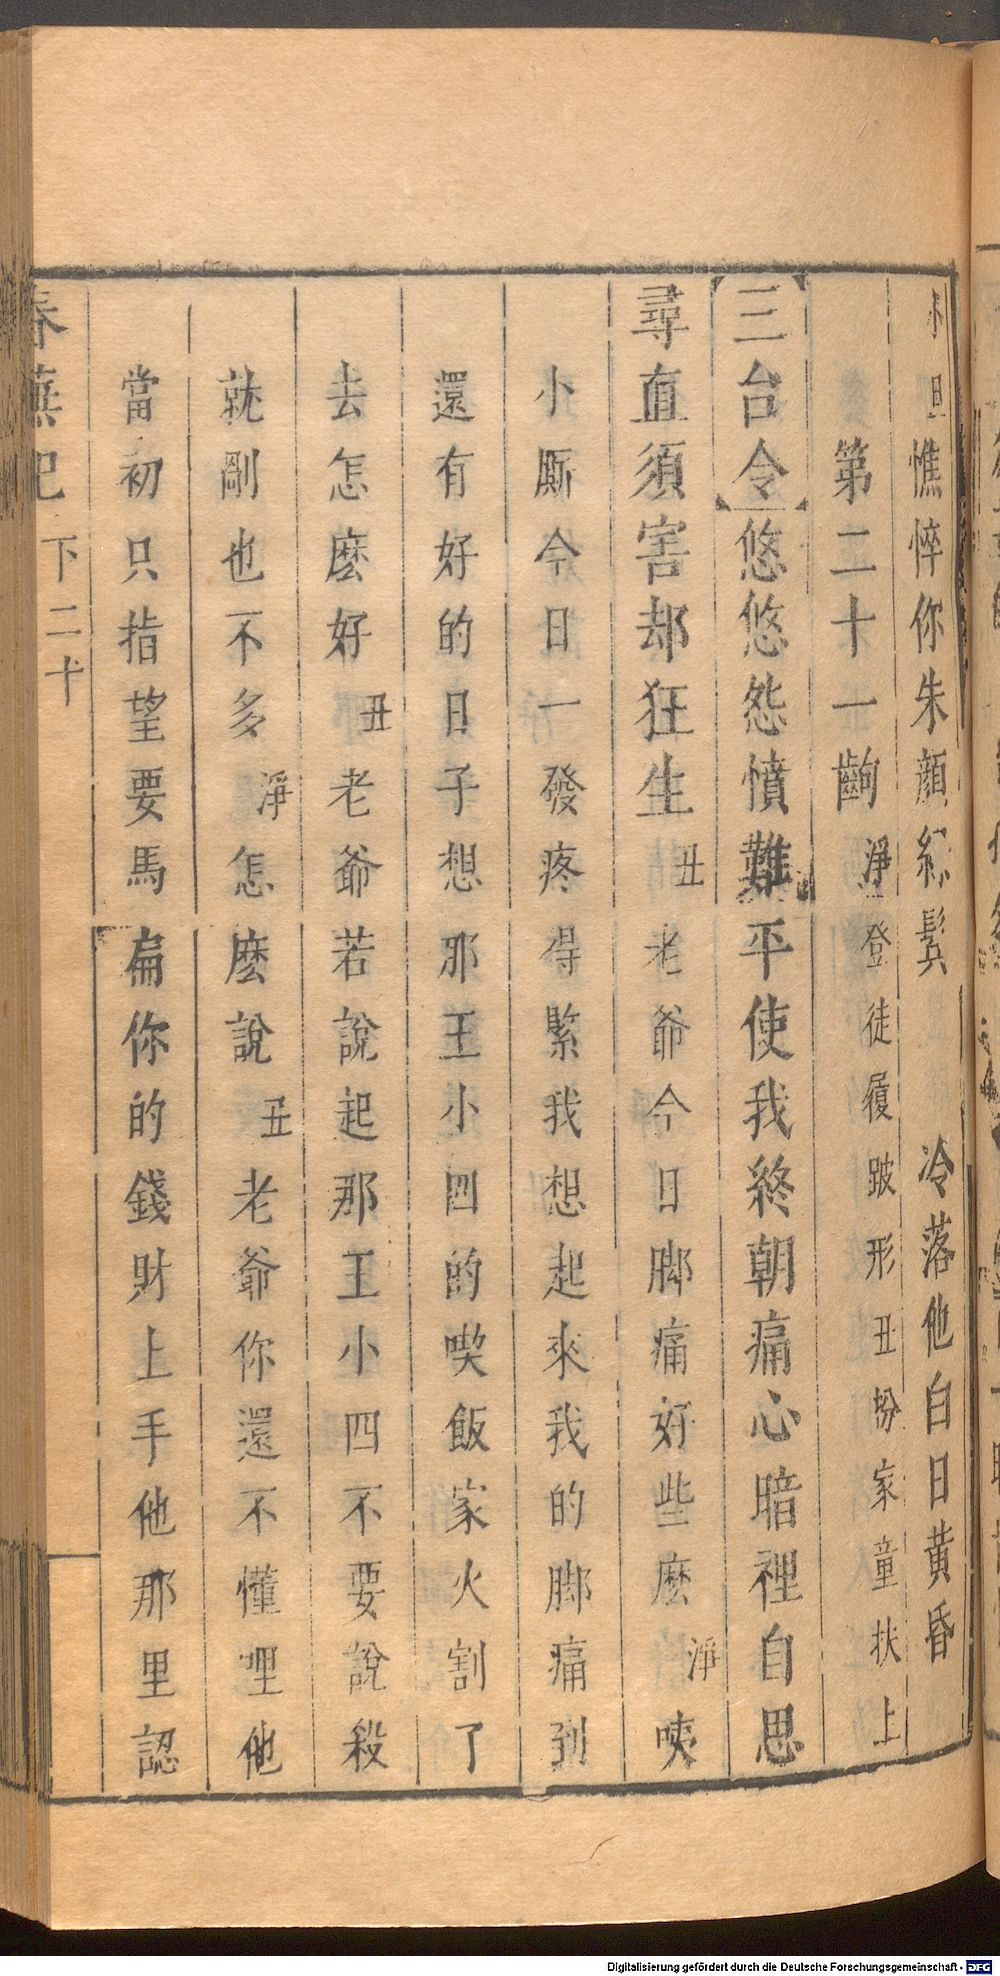 小旦憔悴你朱顔綠鬂　冷落他白日黄昏
第二十一齣　淨登徒履跛形丑扮家童扶上
三台令　悠悠怨憤難平使我終朝痛心暗裡自思
尋直須害却狂生　丑老爺今日脚痛好些麽　淨咦
小厮今日一發疼得緊我想起來我的脚痛到
還有好的日子想那王小四的喫飯家火割了
去怎麽好　丑老爺若說起那王小四不要說殺
就剮也不多　淨怎麽說　丑老爺你還不懂哩他
當初只指望要馬扁你的錢財上手他那里認
春蕪記　下　二十
Digitalisierung gefördert durch die Deutsche Forschungsgemeinschaft - DFG